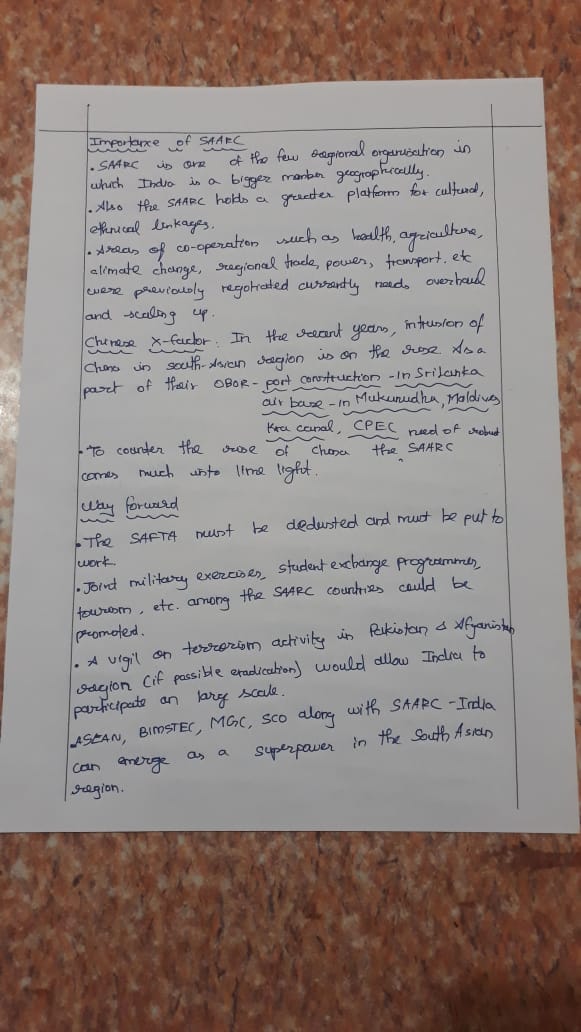 Importance of SAARC
. SAARC is one of the few regional organisation in
which India is a bigger member geographically.
. Also the SAARC holds a greater platform for cultural,
ethnical linkages.
. Areas of co-operation such as health, agriculture,
climate change, regional trade, power, transport, etc
were previously negotiated currently needs overhaul
and scaling up.
Chinese X-factor: In the recent years, intrusion of
China in south-Asian region is on the rise. As a
part of their OBOR - port construction - in Srilanka
air base - in Mukunudha, Maldives
Kra canal, CPEC need of robust
. To counter the rise of China the SAARC
comes much into lime light.
Way forward
. The SAFTA must be dedusted and must be put to
work.
. Joint military exercises, student exchange programmes,
tourism, etc. among the SAARC countries could be
promoted.
. A vigil on terrorism activity in Pakistan & Afganistan
region (if possible eradication) would allow India to
participate on large scale.
. ASEAN, BIMSTEC, MGC, SCO along with SAARC - India
can emerge as a superpower in the South Asian
region.